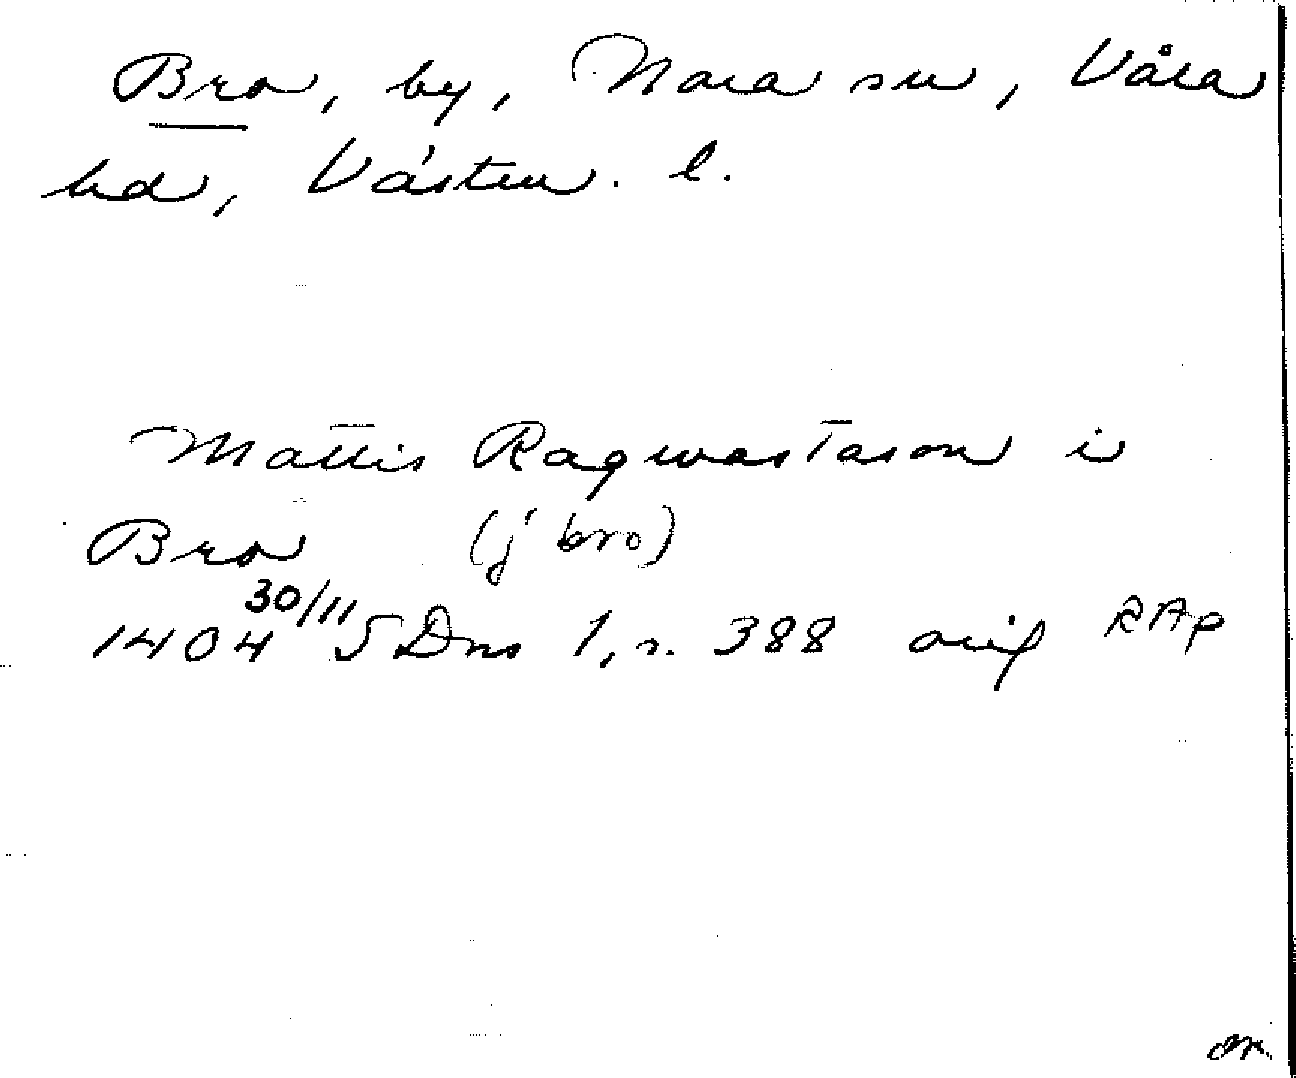 Bro, by, Nora sn, Våla
hd, Västm. l.
Mattis Ragwastason i
Bro (j bro)
1404 30/11 SDns 1, s. 388 orig RAp